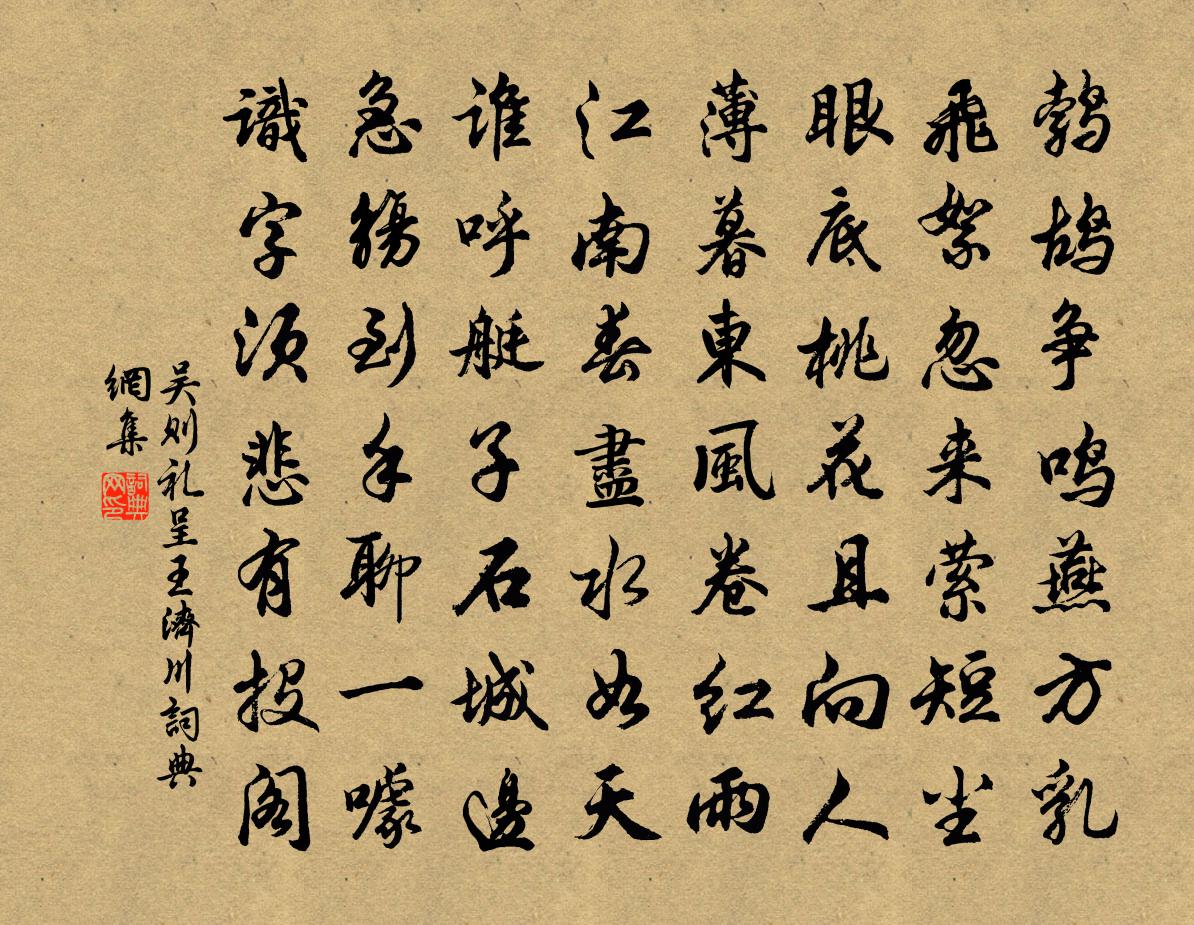 鹁鸪争鸣燕方乳
飛絮忽来萦短尘
眼底桃花且向人
薄暮東風卷红雨
江南春盡水如天
谁呼艇子石城邊
急觴到手聊一噱
識字须悲有投阁
吴则礼呈王濟川詞典
網集
詞典网印